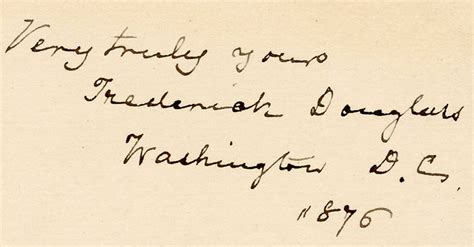 Very truly yours
Frederick Douglass
Washington D.C.
1876